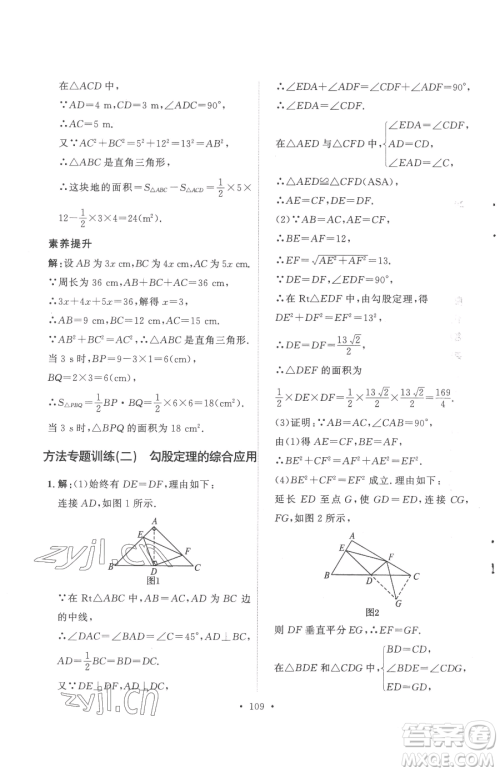 在△ACD中，
∵AD=4 m，CD=3 m，∠ADC=90°，
∴AC=5 m.
又∵AC²+BC²=5²+12²=13²=AB²，
∴△ABC是直角三角形.
∴这块地的面积=S△ABC−S△ACD=1/2×5×
12−1/2×3×4=24(m²).
素养提升
解：设AB为3x cm，BC为4x cm，AC为5x cm.
∵周长为36 cm，AB+BC+AC=36 cm，
∴3x+4x+5x=36，解得x=3.
∴AB=9 cm，BC=12 cm，AC=15 cm.
∵AB²+BC²=AC²，∴△ABC是直角三角形.
当3 s时，BP=9−3=6(cm)，
BQ=2×3=6(cm)，
∴S△PBQ=1/2BP·BQ=1/2×6×6=18(cm²).
当3 s时，△BPQ的面积为18 cm².
方法专题训练(二) 勾股定理的综合应用
1.解：(1)始终有DE=DF，理由如下：
连接AD，如图1所示.
A
E
F
B
D
C
图1
∵在Rt△ABC中，AB=AC，AD为BC边
的中线，
∴∠DAC=∠BAD=∠C=45°，AD⊥BC，
AD=1/2BC，∴BD=AD=DC.
又∵DE⊥DF，AD⊥DC，
∴∠EDA+∠ADF=∠CDF+∠ADF=90°，
∴∠EDA=∠CDF.
在△AED与△CFD中，{∠EDA=∠CDF，
AD=CD，
∠EAD=∠C，
∴△AED≌△CFD(ASA)，
∴AE=CF，DE=DF.
(2)∵AB=AC，AE=CF，
∴BE=AF，
∴EF=√AE²+AF²=13.
∴在Rt△DEF中，由勾股定理，得
DE²+DF²=EF²，
∴DE=DF=13√2/2，
∴△DEF的面积为
1/2×DE×DF=1/2×13√2/2×13√2/2=169/4.
(3)证明：∵AB=AC，AE=CF，∴BE=AF.
由(1)得AE=CF，
∵AE²+AF²=EF²，∴BE²+CF²=EF².
(4)BE²+CF²=EF²，理由如下：
延长ED至点G，使得DG=DE，连接CG，
FG，如图2所示，
A
E
F
B
D
C
G
图2
则DF垂直平分EG，∴EF=FG.
在△BDE与△CDG中，{BD=CD，
∠BDE=∠CDG，
ED=GD，
109
zyjl.cn
zyjl.cn
答案圈